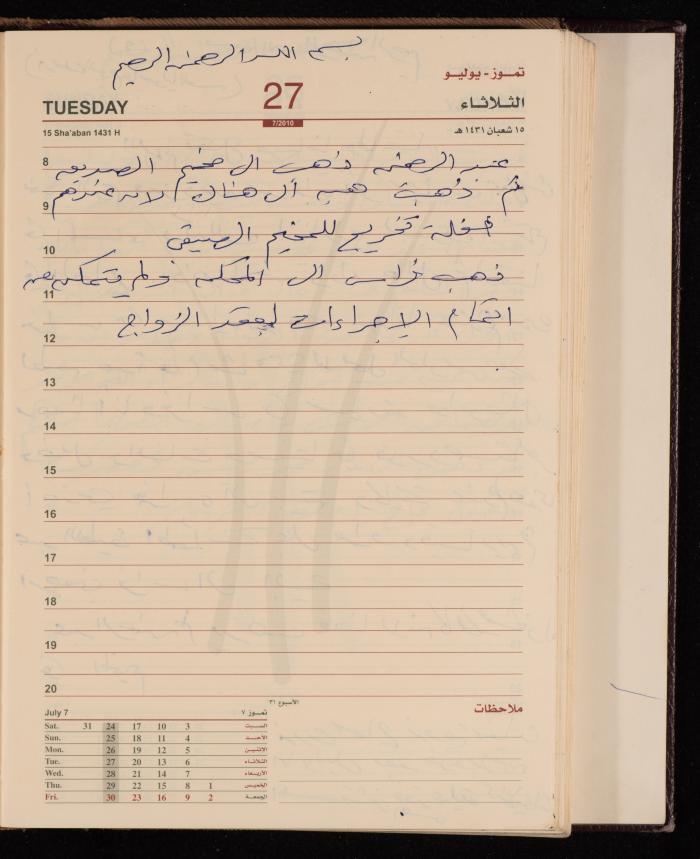 بسم الله الرحمن الرحيم
تموز - يوليو
TUESDAY
27
7/2010
الثلاثاء
15 Sha'aban 1431 H
١٥ شعبان ١٤٣١ هـ
8
عبد الرحمن ذهب الى مخيم الصديق
ثم ذهبت هبه الى هناك لانه عندهم
9
حفلة تخريج للمخيم الصيفي
10
ذهب فراس الى المحكمه ولم يتمكن من
11
اتمام الإجراءات لعقد الزواج
12
13
14
15
16
17
18
19
20
July 7
تموز ٧
الأسبوع ٣١
ملاحظات
Sat. 31 24 17 10 3 السبت
Sun. 25 18 11 4 الأحد
Mon. 26 19 12 5 الاثنين
Tue. 27 20 13 6 الثلاثاء
Wed. 28 21 14 7 الأربعاء
Thu. 29 22 15 8 1 الخميس
Fri. 30 23 16 9 2 الجمعة